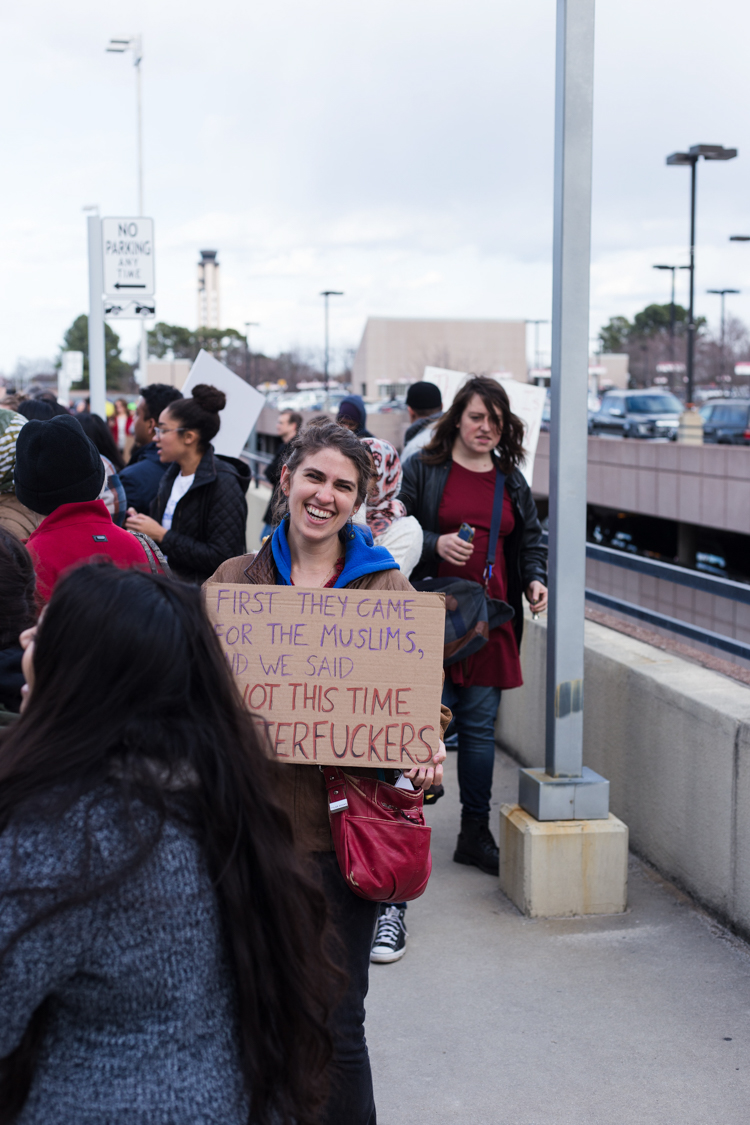 NO
PARKING
ANY
TIME
FIRST THEY CAME
FOR THE MUSLIMS,
ND WE SAID
NOT THIS TIME
TERFUCKERS